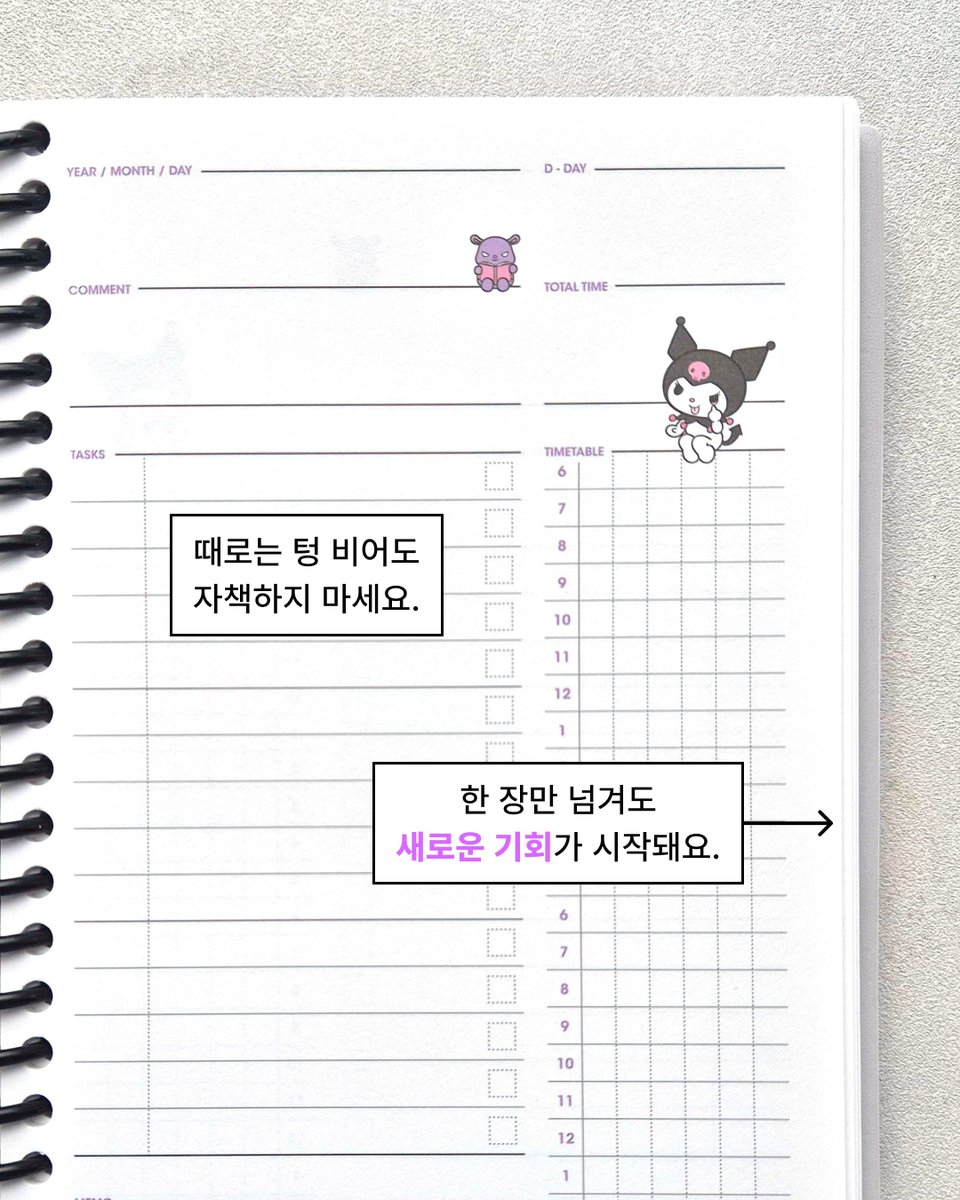 YEAR / MONTH / DAY
D - DAY
COMMENT
TOTAL TIME
TASKS
TIMETABLE
6
7
8
9
10
11
12
1
때로는 텅 비어도
자책하지 마세요.
한 장만 넘겨도
새로운 기회가 시작돼요.
6
7
8
9
10
11
12
1